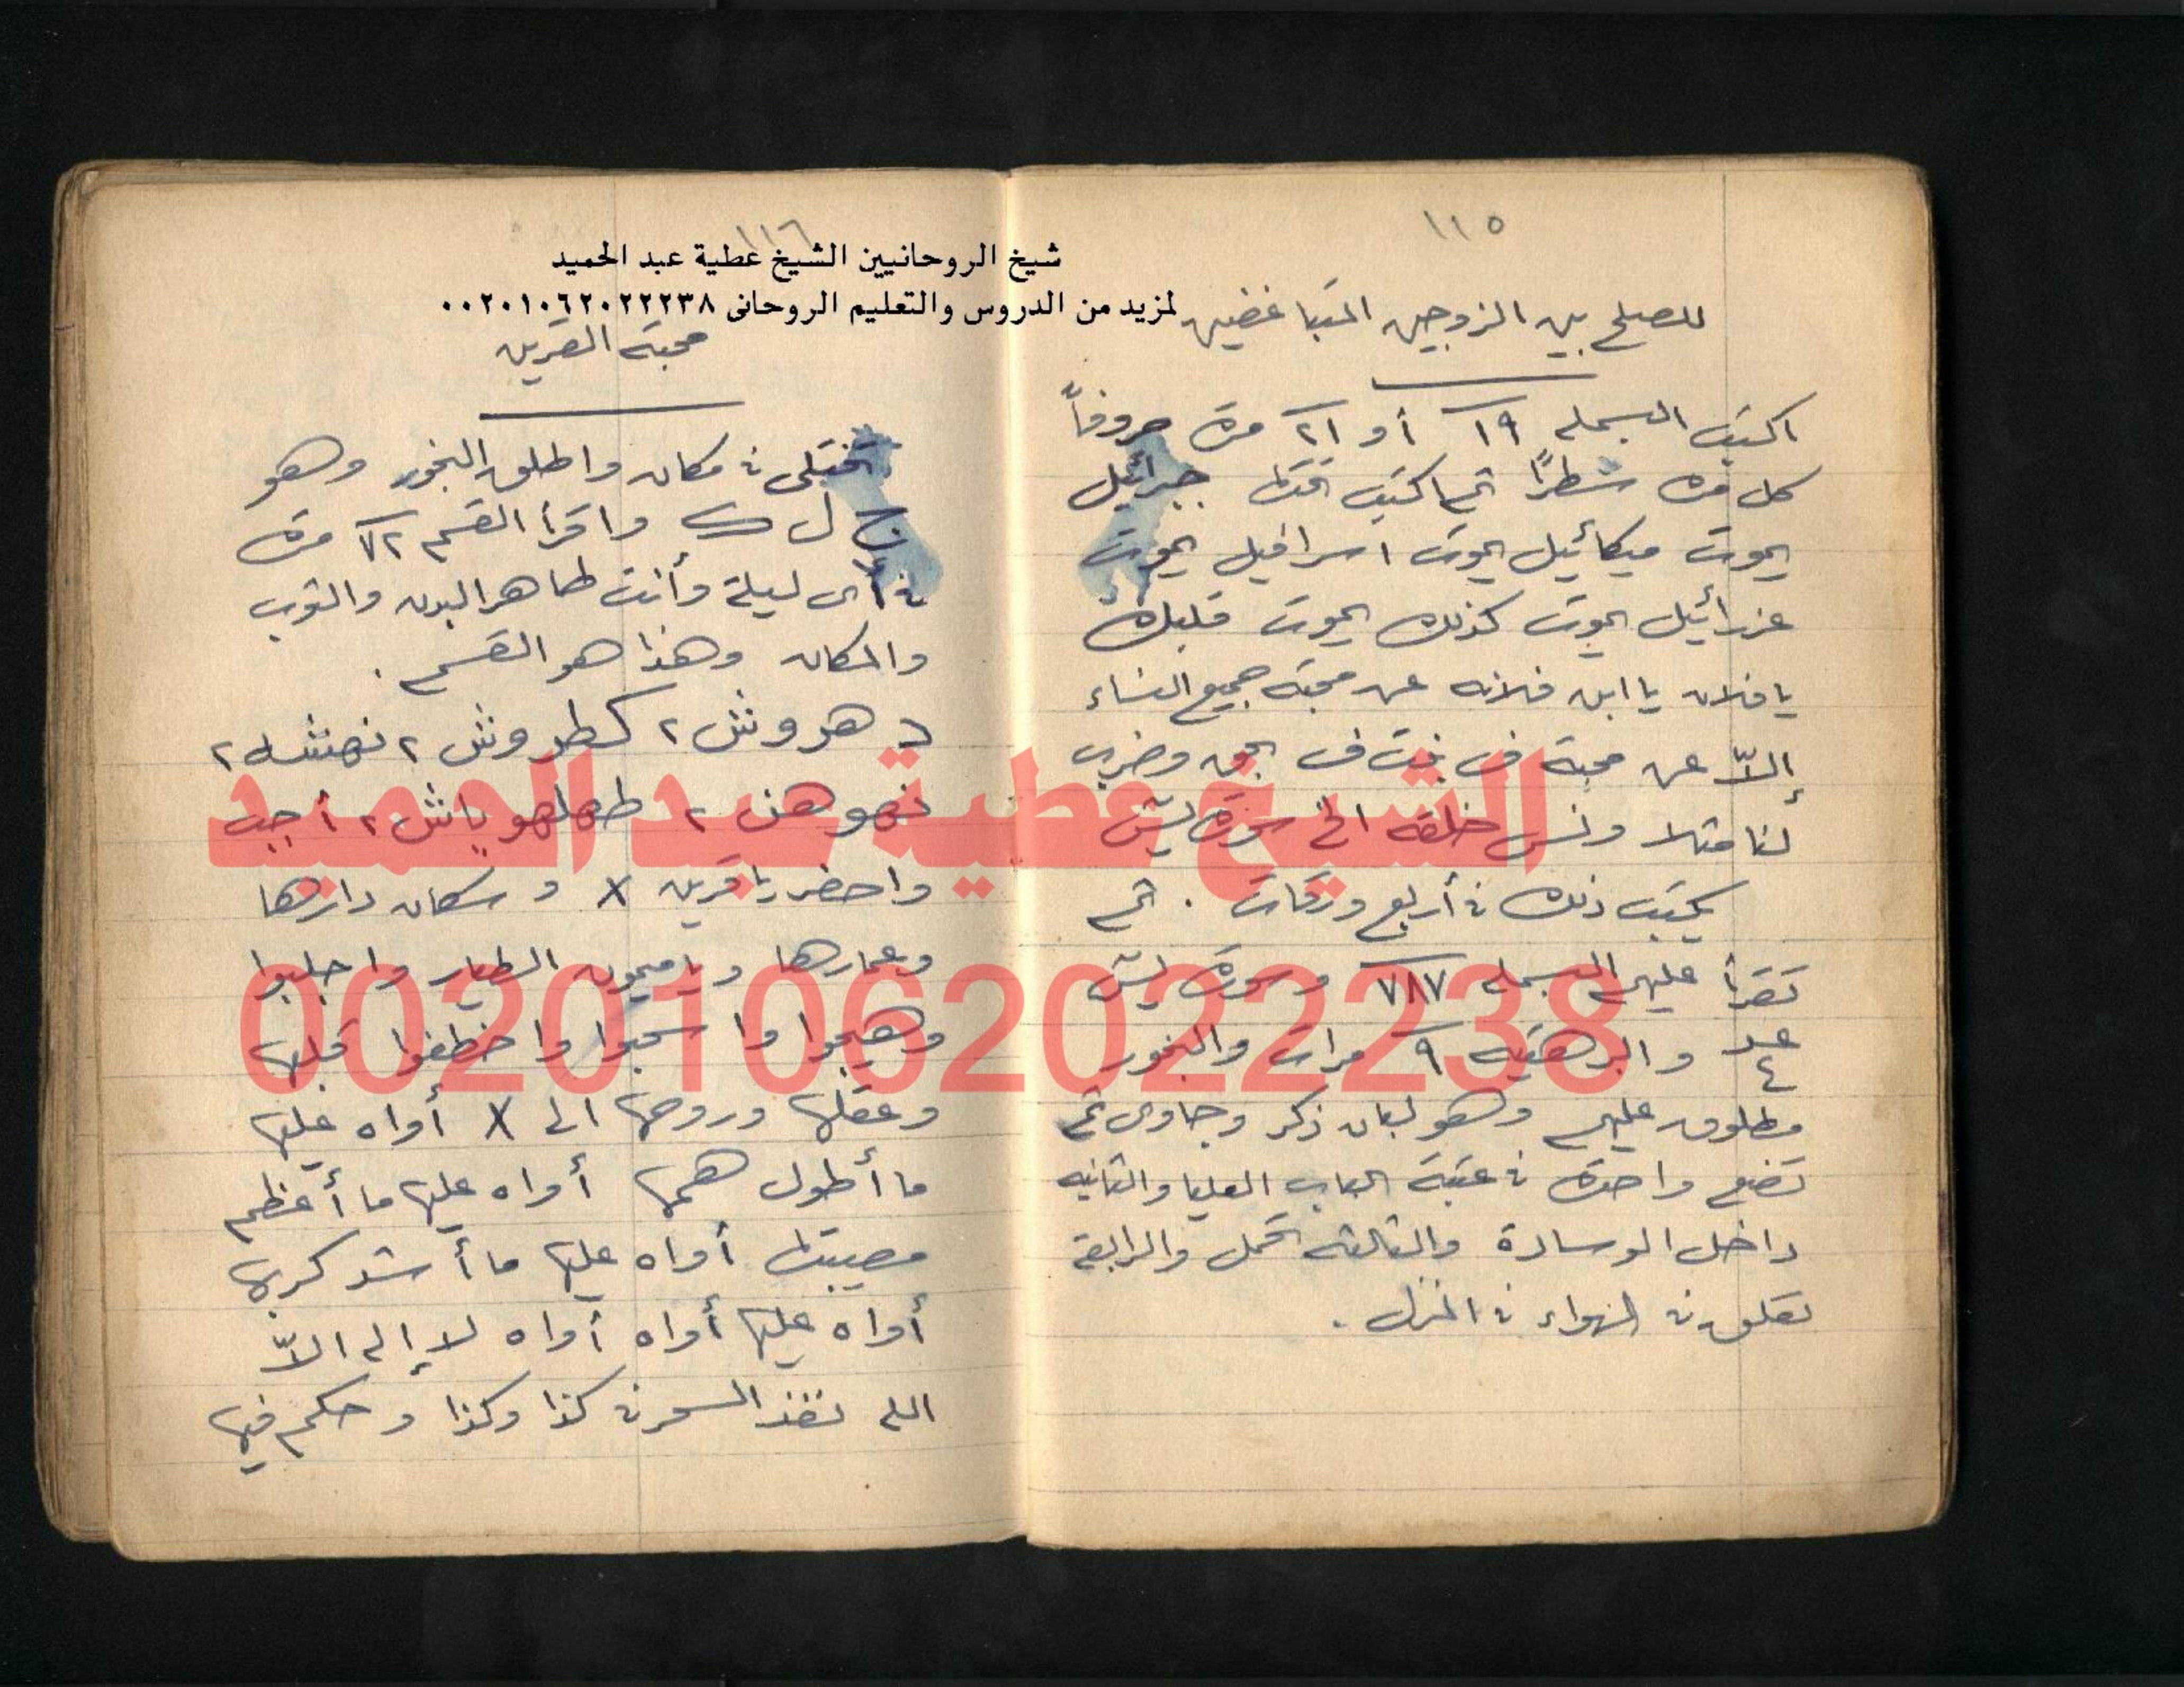 ١١٥
للصلح بين الزوجين المتباغضين
اكتب البسمله ١٩ أو ٢١ مرة حروفاً
كل مره سطرًا ثم اكتب تحتها جبرائيل
يموت ميكائيل يموت اسرافيل يموت
عزرائيل يموت كذلك يموت قلبك
يا فلان يا ابن فلانه عن محبة جميع النساء
إلاّ عن محبة ف بنت ف بحق وضرب
لنا مثلا ونسى خلقه الخ سورة يس
يكتب ذلك في أربع ورقات . ثم
تقرأ عليهم البسمله ٧٨٧ وسورة يس
عدد ٤ والبرهتيه ٩ مرات والبخور
مطلوق عليهم وهو لبان ذكر وجاوى ثم
تضع واحدة في عتبة الباب العليا والثانيه
داخل الوسادة والثالثه تحمل والرابعة
تعلق في الهواء في المنزل .
١١٦
شيخ الروحانيين الشيخ عطية عبد الحميد
لمزيد من الدروس والتعليم الروحانى ٠٠٢٠١٠٦٢٠٢٢٢٣٨
محبة القرين
تختلى في مكان واطلق البخور وهو
ج ل ك واقرأ القسم ٧٢ مرة
في أى ليلة وأنت طاهر البدن والثوب
والمكان وهذا هو القسم .
دهروش ٢ كطروش ٢ نهشله ٢
نهوهن ٢ طهلهوياش ٢ أجب
واحضر يا قرين X و سكان دارها
وعمارها ويا ميمون الطيار واجلبوا
وهيجوا واسحبوا واخطفوا قلبها
وعقلها وروحها الى X أواه عليها
ما أطول همها أواه عليها ما أعظم
مصيبتها أواه عليها ما أشد كربها
أواه عليها أواه أواه لا إله الاّ
الله نفذ السحر في كذا وكذا وحكم فيها
الشيخ عطية عبد الحميد
00201062022238